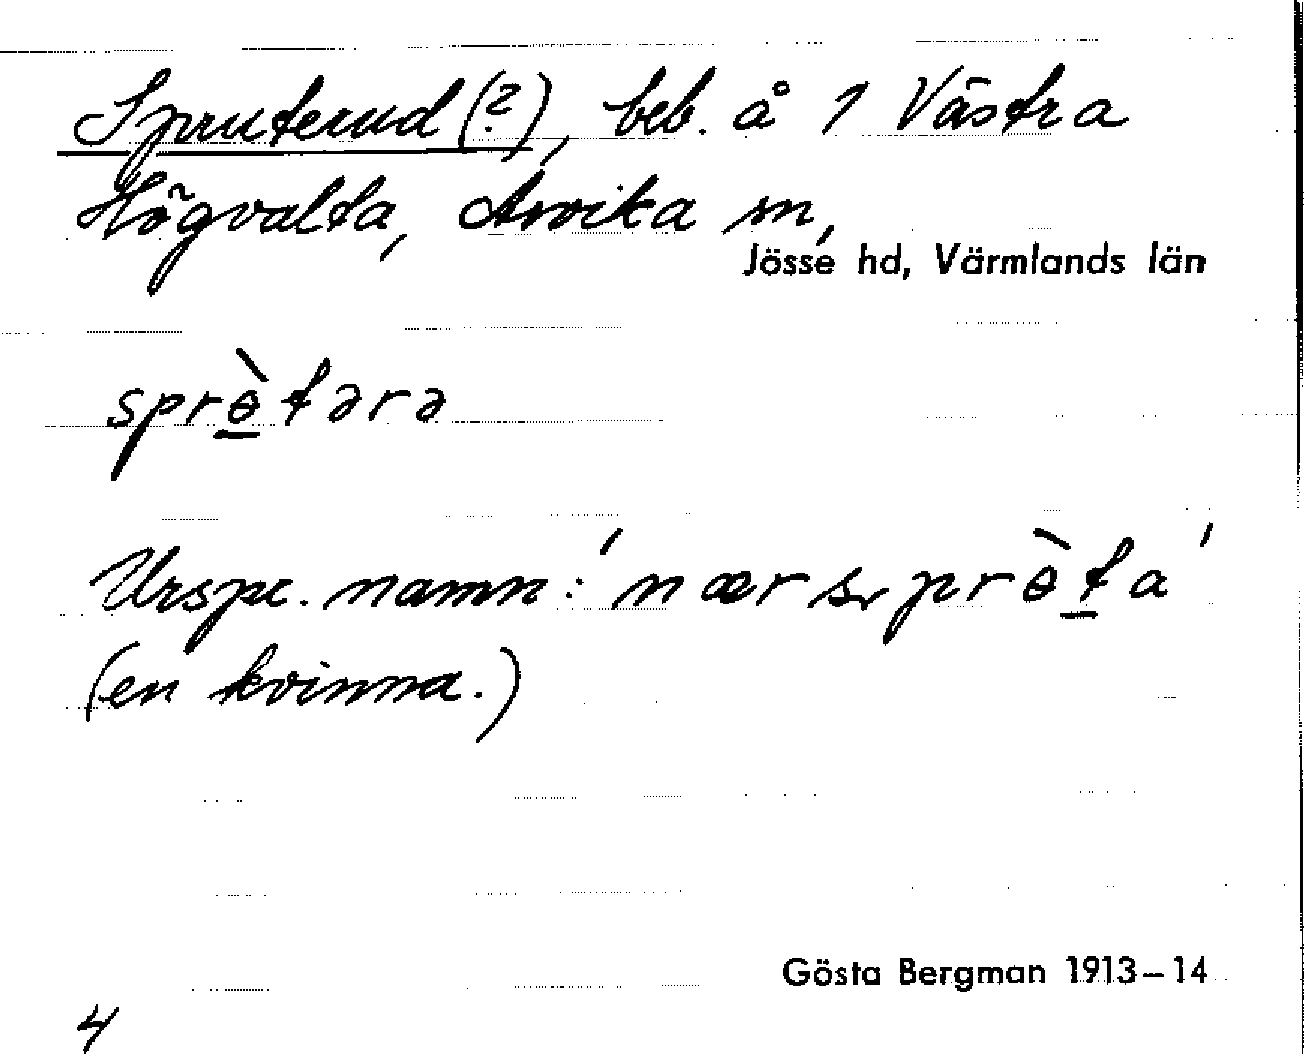 Spruterud (?), beb. å 1 Västra
Högvalta, Arvika sn,
Jösse hd, Värmlands län
sprɵ̠̀tərə
Urspr. namn: 'nærspɵ̠̀ta'
(en kvinna.)
Gösta Bergman 1913–14
4